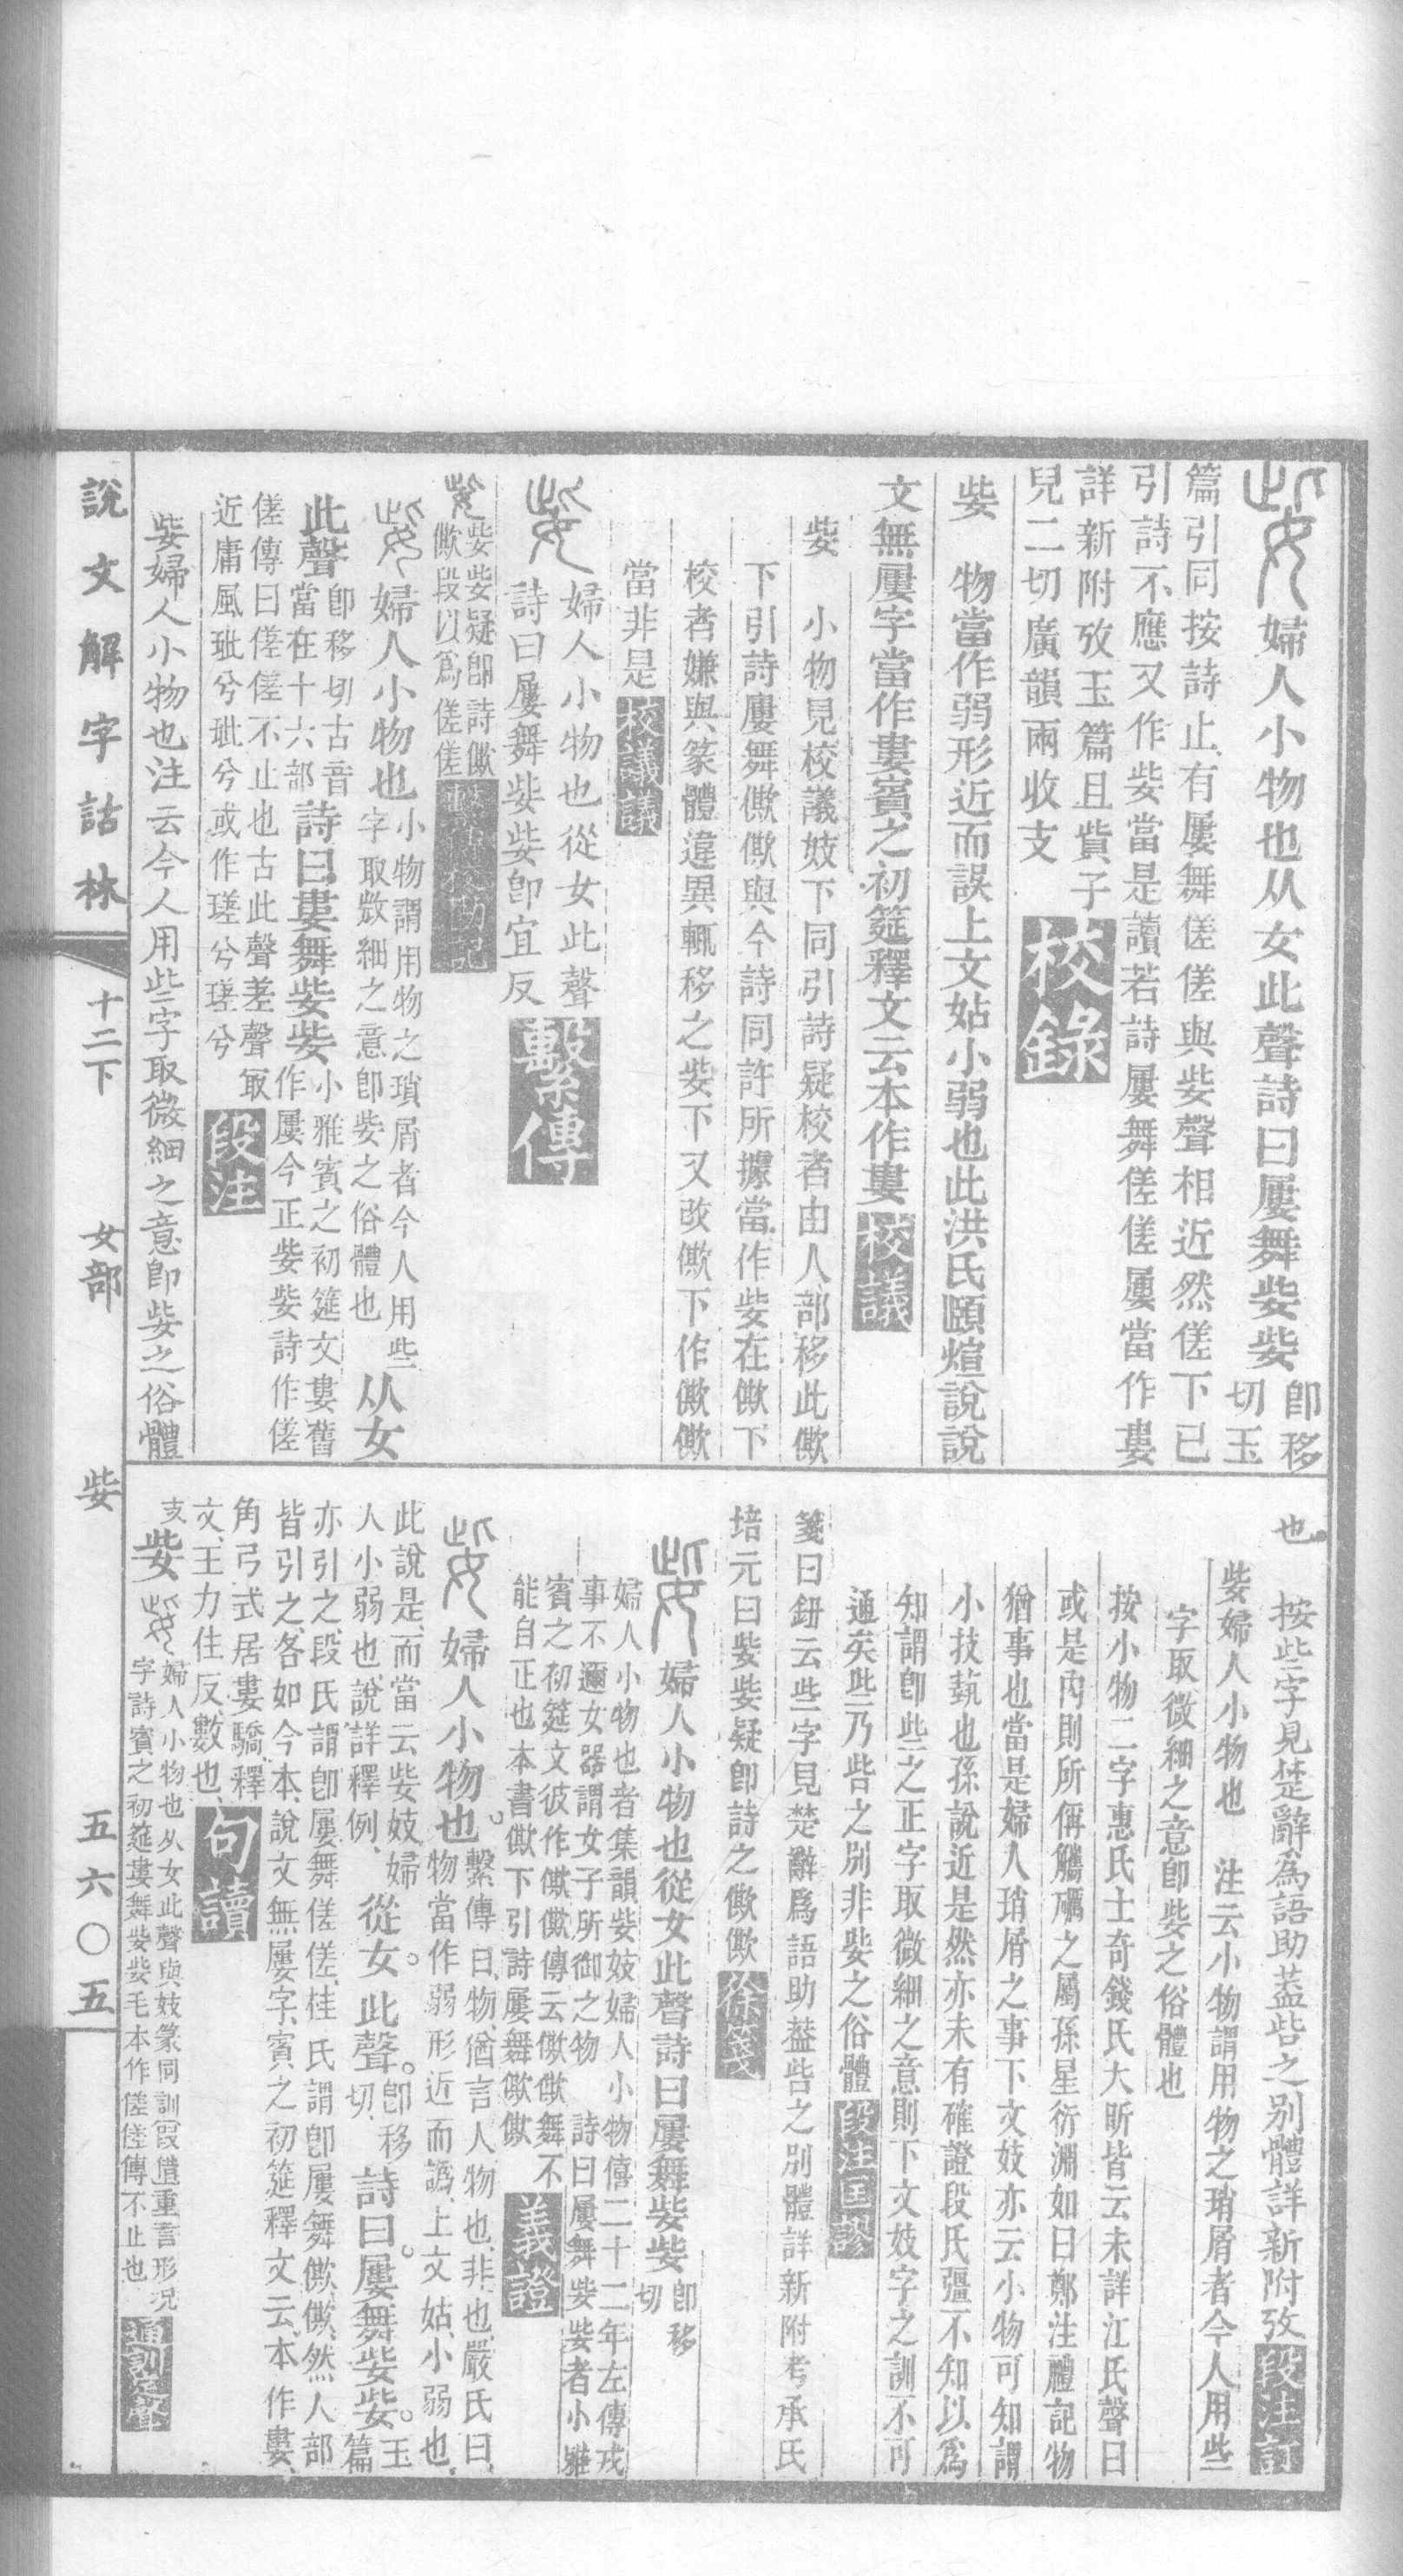 婦人小物也从女此聲詩曰屢舞㛖㛖即移切玉
篇引同按詩止有屢舞傞傞與㛖聲相近然傞下已
引詩不應又作㛖當是讀若詩屢舞傞傞屢當作婁
詳新附攷玉篇且貲子
兒二切廣韻兩收支校錄
㛖 物當作弱形近而誤上文姑小弱也此洪氏頤煊說說
文無屢字當作婁賓之初筵釋文云本作婁校議
㛖 小物見校議妓下同引詩疑校者由人部移此僛
下引詩屢舞僛僛與今詩同許所據當作㛖在僛下
校者嫌與篆體違異輒移之㛖下又改僛下作僛僛
當非是校議議
婦人小物也從女此聲
詩曰屢舞㛖㛖即宜反繫傳
㛖㛖疑即詩僛
僛段以爲傞傞繫傳校勘記
婦人小物也小物謂用物之瑣屑者今人用些
字取㪚細之意即㛖之俗體也从女
此聲即移切古音
當在十六部詩曰婁舞㛖㛖小雅賓之初筵文婁舊
作屢今正㛖㛖詩作傞
傞傳曰傞傞不止也古此聲差聲冣
近庸風玼兮玼兮或作瑳兮瑳兮段注
㛖婦人小物也注云今人用些字取微細之意即㛖之俗體
也
按些字見楚辭為語助蓋呰之別體詳新附攷段注訂
㛖婦人小物也 注云小物謂用物之瑣屑者今人用些
字取微細之意即㛖之俗體也
按小物二字惠氏士奇錢氏大昕皆云未詳江氏聲曰
或是內則所偁觿礪之屬孫星衍淵如曰鄭注禮記物
猶事也當是婦人瑣屑之事下文妓亦云小物可知謂
小技埶也孫說近是然亦未有確證段氏彊不知以爲
知謂即些之正字取微細之意則下文妓字之訓不可
通矣些乃呰之別非㛖之俗體段注匡謬
箋曰鈕云些字見楚辭爲語助葢呰之別體詳新附考承氏
培元曰㛖㛖疑卽詩之僛僛徐箋
婦人小物也從女此聲詩曰屢舞㛖㛖卽移切
婦人小物也者集韻㛖妓婦人小物僖二十二年左傳戎
事不邇女器謂女子所御之物 詩曰屢舞㛖㛖者小雅
賓之初筵文彼作僛僛傳云僛僛舞不
能自正也本書僛下引詩屢舞僛僛義證
婦人小物也。繫傳曰、物、猶言人、物也、非也、嚴氏曰、
物當作弱形近而譌、上文姑、小弱也、
此說是、而當云㛖妓婦
人小弱也、說詳釋例、從女。此聲。卽移切、詩曰。屢舞㛖㛖。玉篇
亦引之、段氏謂卽屢舞傞傞、桂氏謂卽屢舞僛僛、然人部
皆引之、各如今本、說文無屢字、賓之初筵釋文云、本作婁、
角弓式居婁驕、釋
文、王力住反、數也、句讀
支㛖婦人小物也从女此聲與妓篆同訓叚借重言形況
字詩賓之初筵婁舞㛖㛖毛本作傞傞傳不止也通訓定聲
說文解字詁林 十二下 女部 㛖 五六〇五